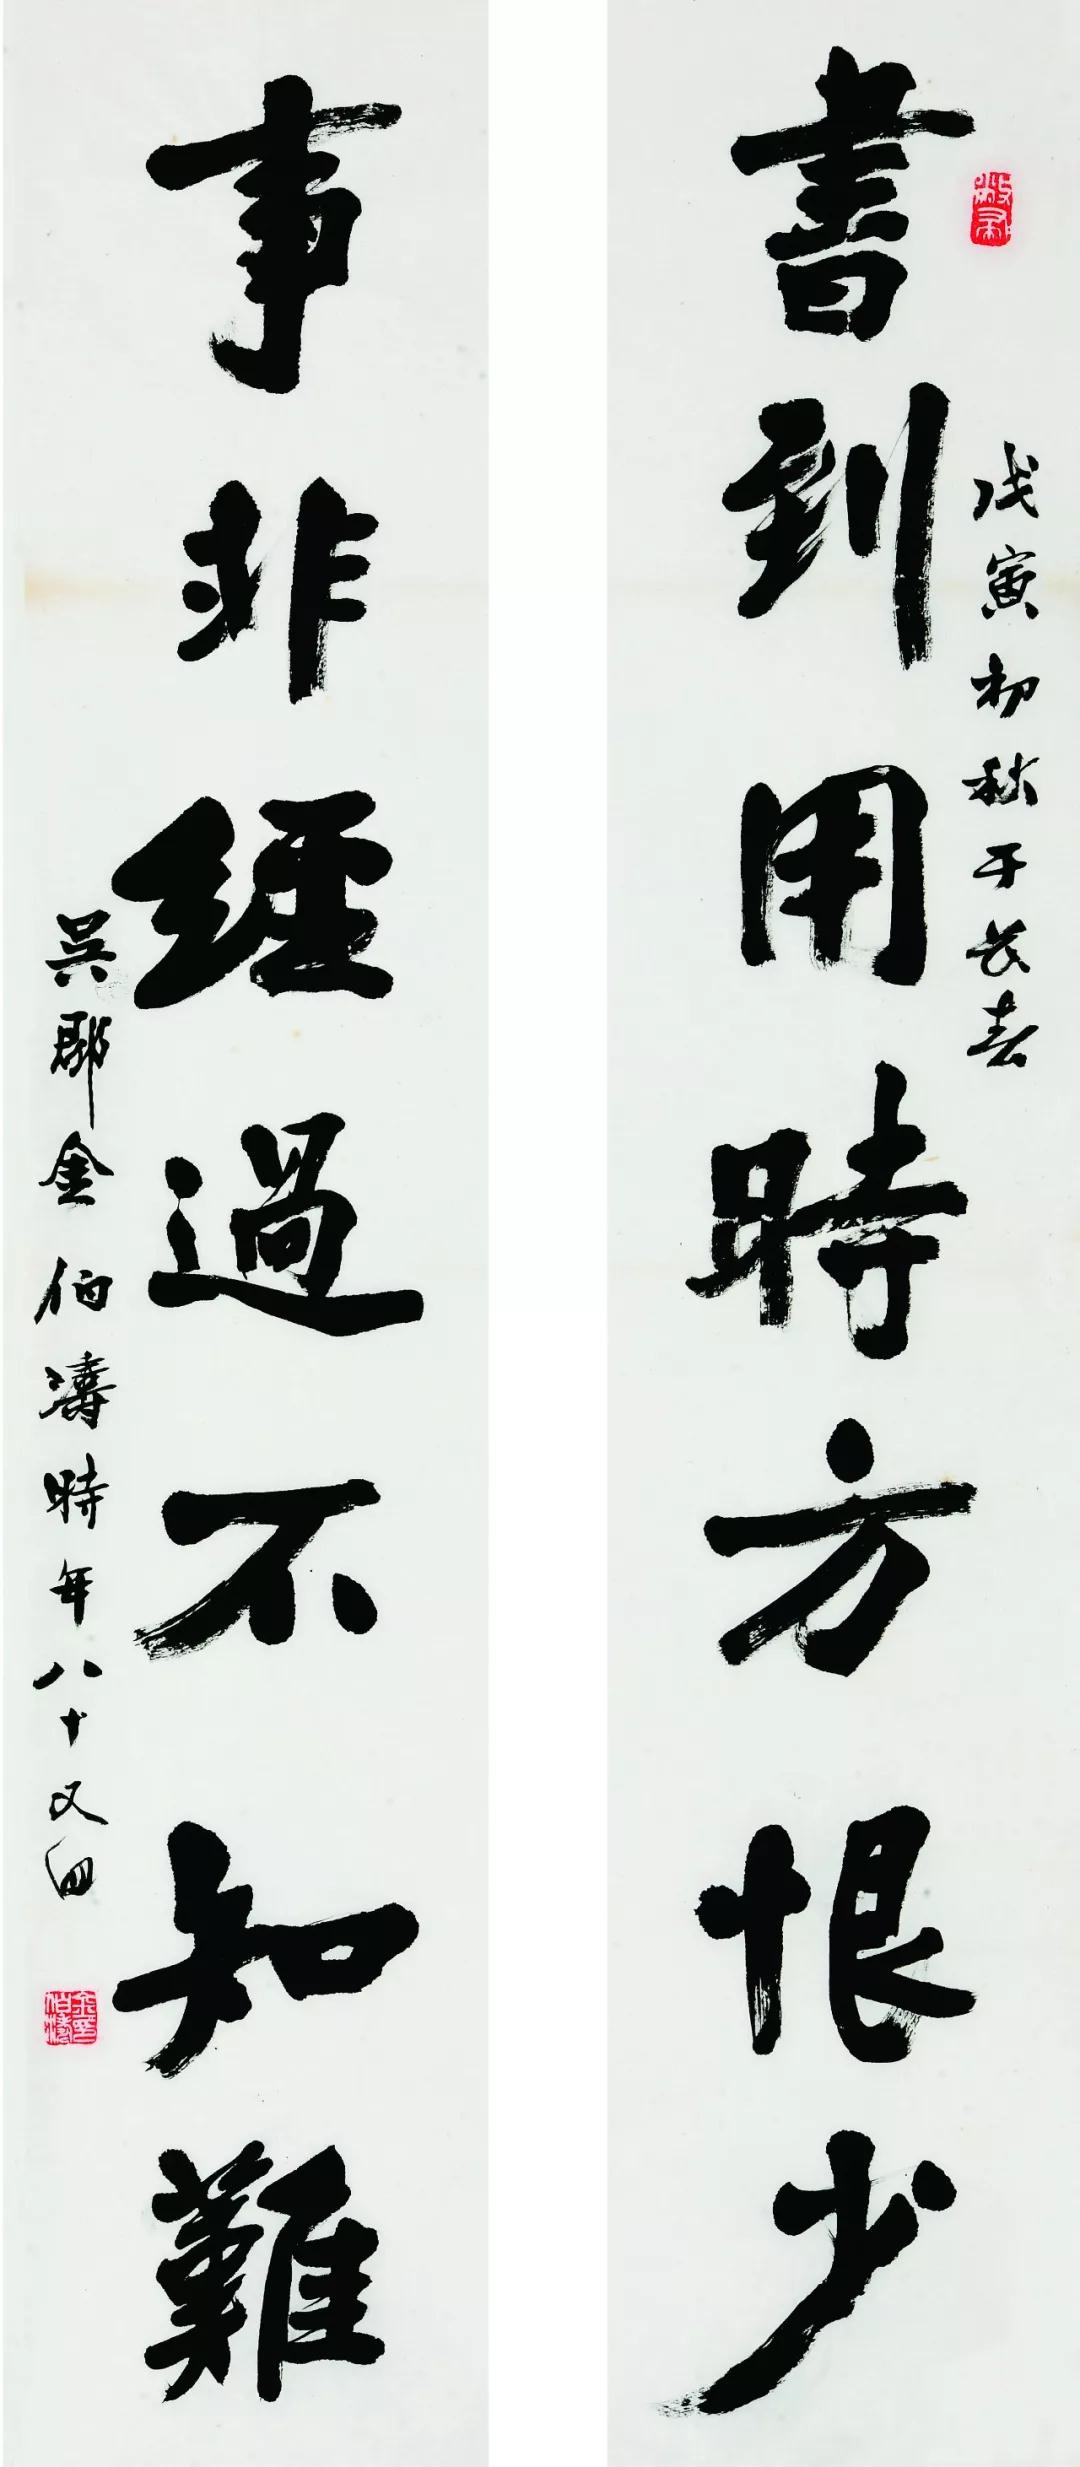 戊寅初秋于长春
書到用時方恨少
事非經過不知難
吳郡金伯濤時年八十又四